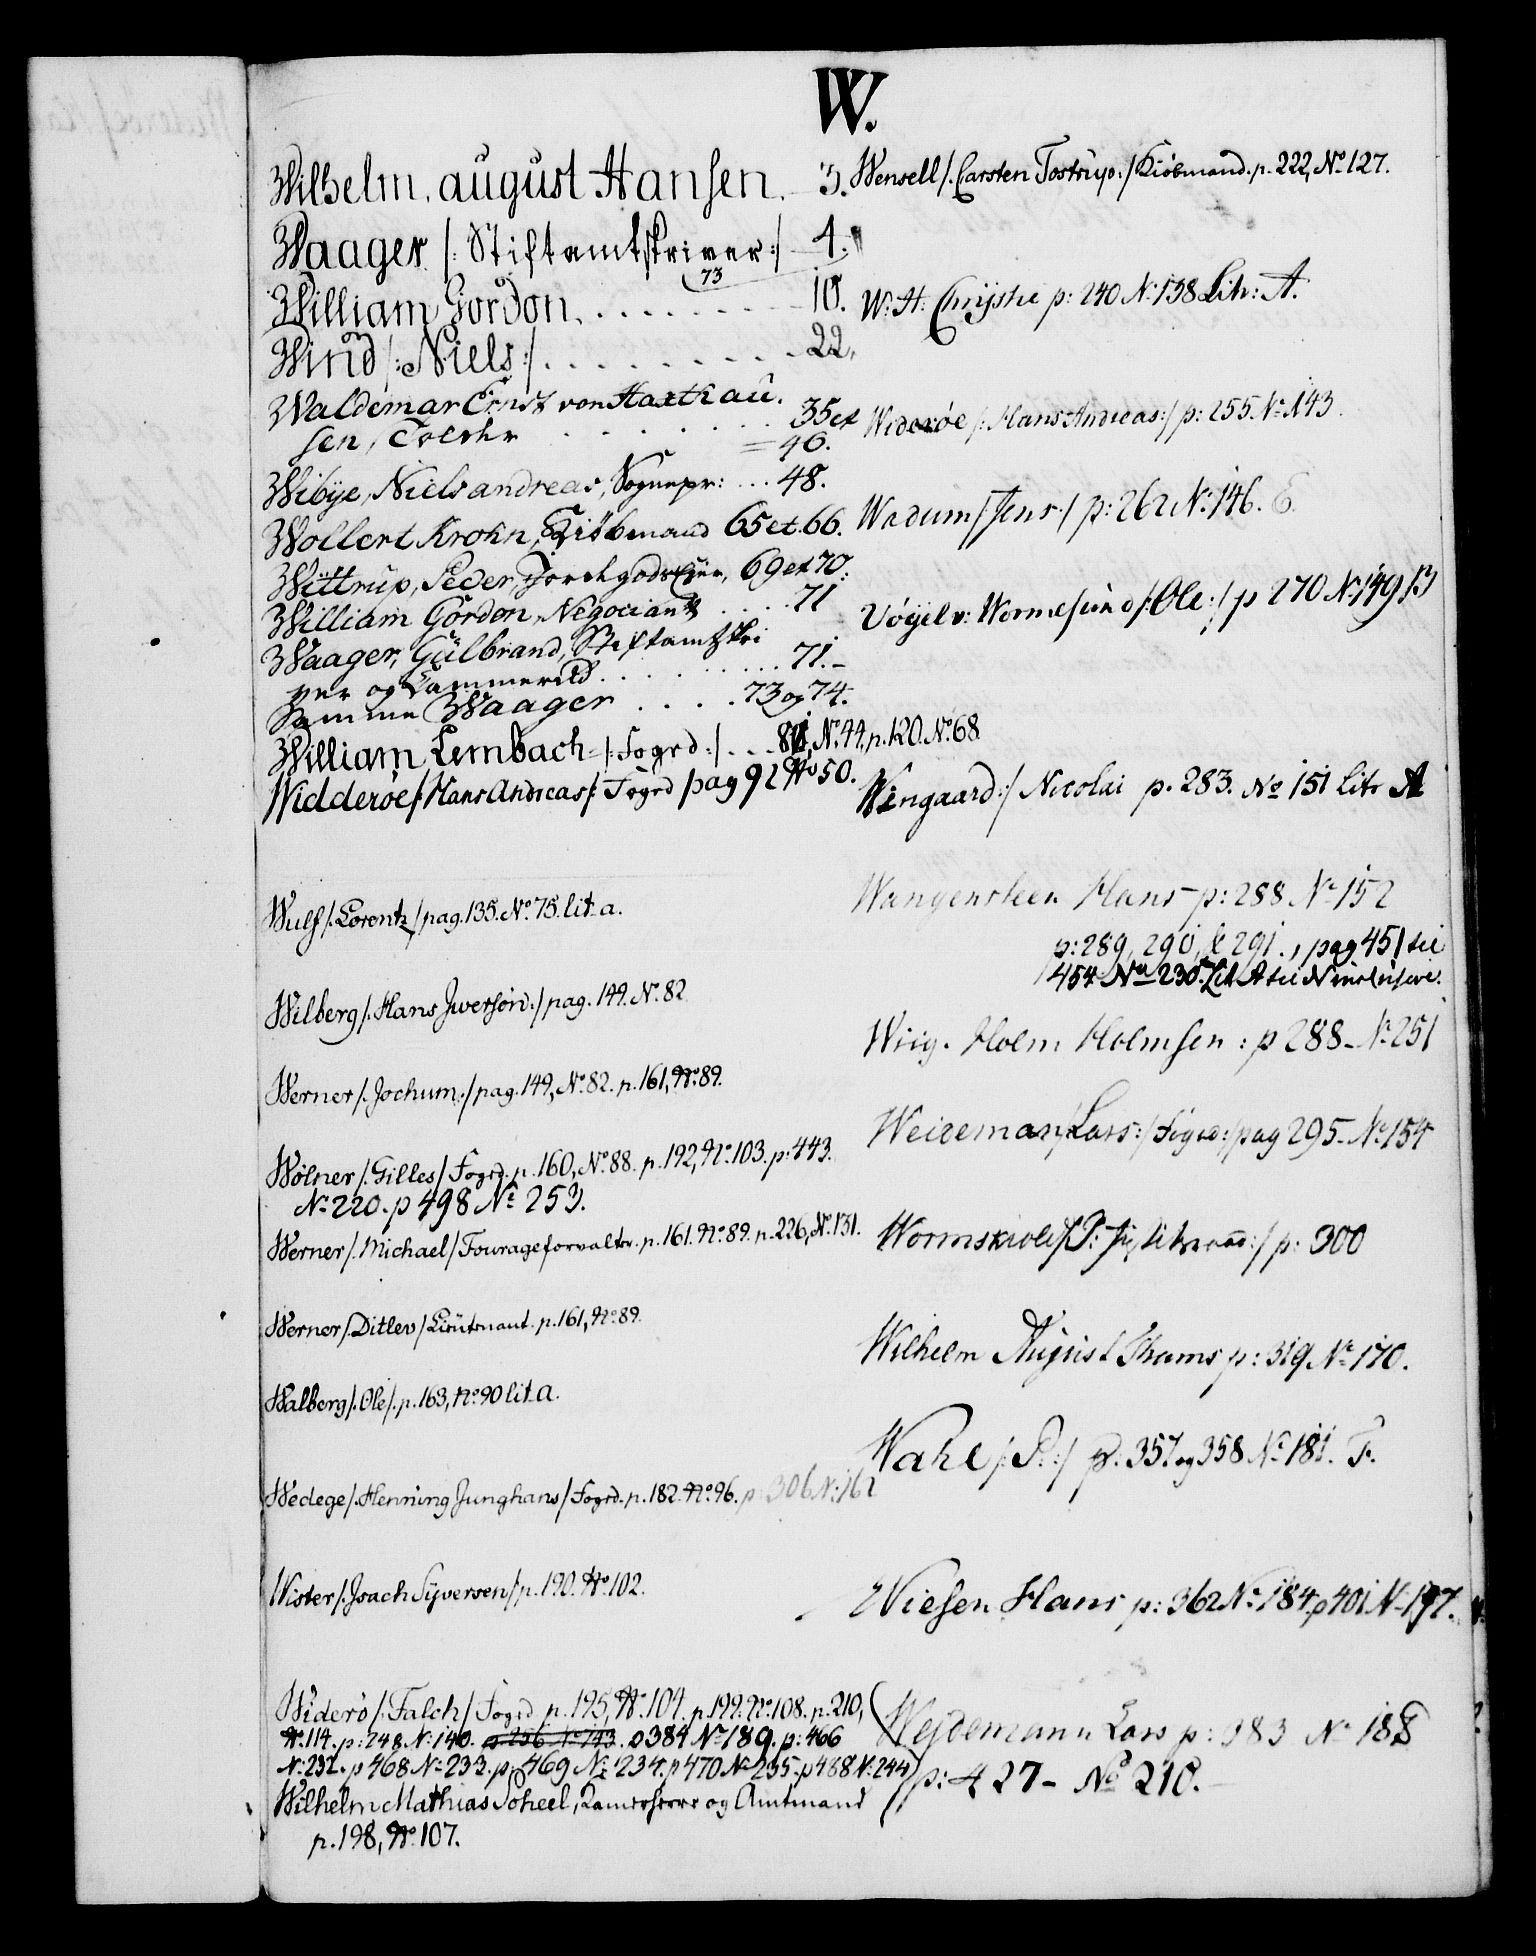 W.
Wilhelm august Hansen. 3.
Waager /: Stiftamtskriver :/ 4.
73
William Gordon. . . . . . . . 10.
Wind /: Niels :/ . . . . . . . . 22.
Waldemar Ernst von Haxthau-
sen, . . . . . . 35 et
= 46.
Wibÿe, Niels andreas, Sognepr: ... 48.
Wollert Krohn, Kiöbmand 65 et 66.
Wittrup, Peder, 69 et 70.
William Gordon, Negociant . . . . 71
Waager, Gülbrand, Stiftamtskri
ver og Cammerråd . . . . . . 71.-
Samme Waager . . . . 73 og 74.
William Lembach /: Fogd :/ . . . No. 44, p. 120. No. 68
Widderøe /: Hans Andreas /: Fogd pag 92 No 50.
Wulf /. Lorentz / pag. 135. No. 75. lit. a.
Wilberg /. Hans Jwersøn :/ pag. 149. No. 82
Werner /. Jochum. / pag. 149, No. 82. p. 161, No. 89.
Wölner /. Gilles / Fogd. p. 160, No. 88. p. 192, No. 103. p: 443.
No. 220. p 498 No 253.
Werner /. Michael / Fourageforvalter. p. 161. No. 89. p. 226, No. 131.
Werner /. Ditlev / Lieutenant. p. 161, No. 89.
Walberg /. Ole /. p. 163, No. 90 lit. a.
Wedege /. Henning Junghans / Fogd. p. 182. No. 96. p 306 N: 162
Wister /. Jsach Syversen / p. 190. No. 102.
Widerö /. Falch / Fogd p. 195, No. 104. p. 199. No. 108. p. 210,
No. 114. p: 248 N: 140. p 256 No 143. p 384 No 189. p: 466
N: 232. p 468 No 233. p: 469 No 234. p 470 No 235. p 488 N: 244
Wilhelm Mathias Scheel, Kamerherre og Amtmand
p. 198, No. 107.
Wensell /. Carsten Tostrup: / Kiöbmand. p. 222, No. 127.
W: H: Chrÿstie p: 240 No 138 Litr: A.
Widerøe /: Hans Andreas :/ p: 255 No 143.
Wadum / Jens / p: 262 No 146. E.
Vöÿel v: Wormesund /: Ole :/ p 270 No 149 B
Wingaard :/ Nicolai p. 283. No 151 Litr A
Wangensteen Hans p: 288 No 152
p: 289, 290, & 291., pag 451 til
454 No 230. Lit A til N inclusive.
Wiig. Holm Holmsen : p 288 - No 251
Weideman /: Lars :/ Fogd: / pag 295 - No 154
Wormskiold /: P: Justitsraad :/ p: 300
Wilhelm August Thams p: 319 No 170.
Wahl /: P. :/ p: 357 og 358 No 181. F.
Wiesen Hans p: 362 No 184. p 401 No 197.
Wejdemann Lars p: 383 No 188
p: 427 - No 210.